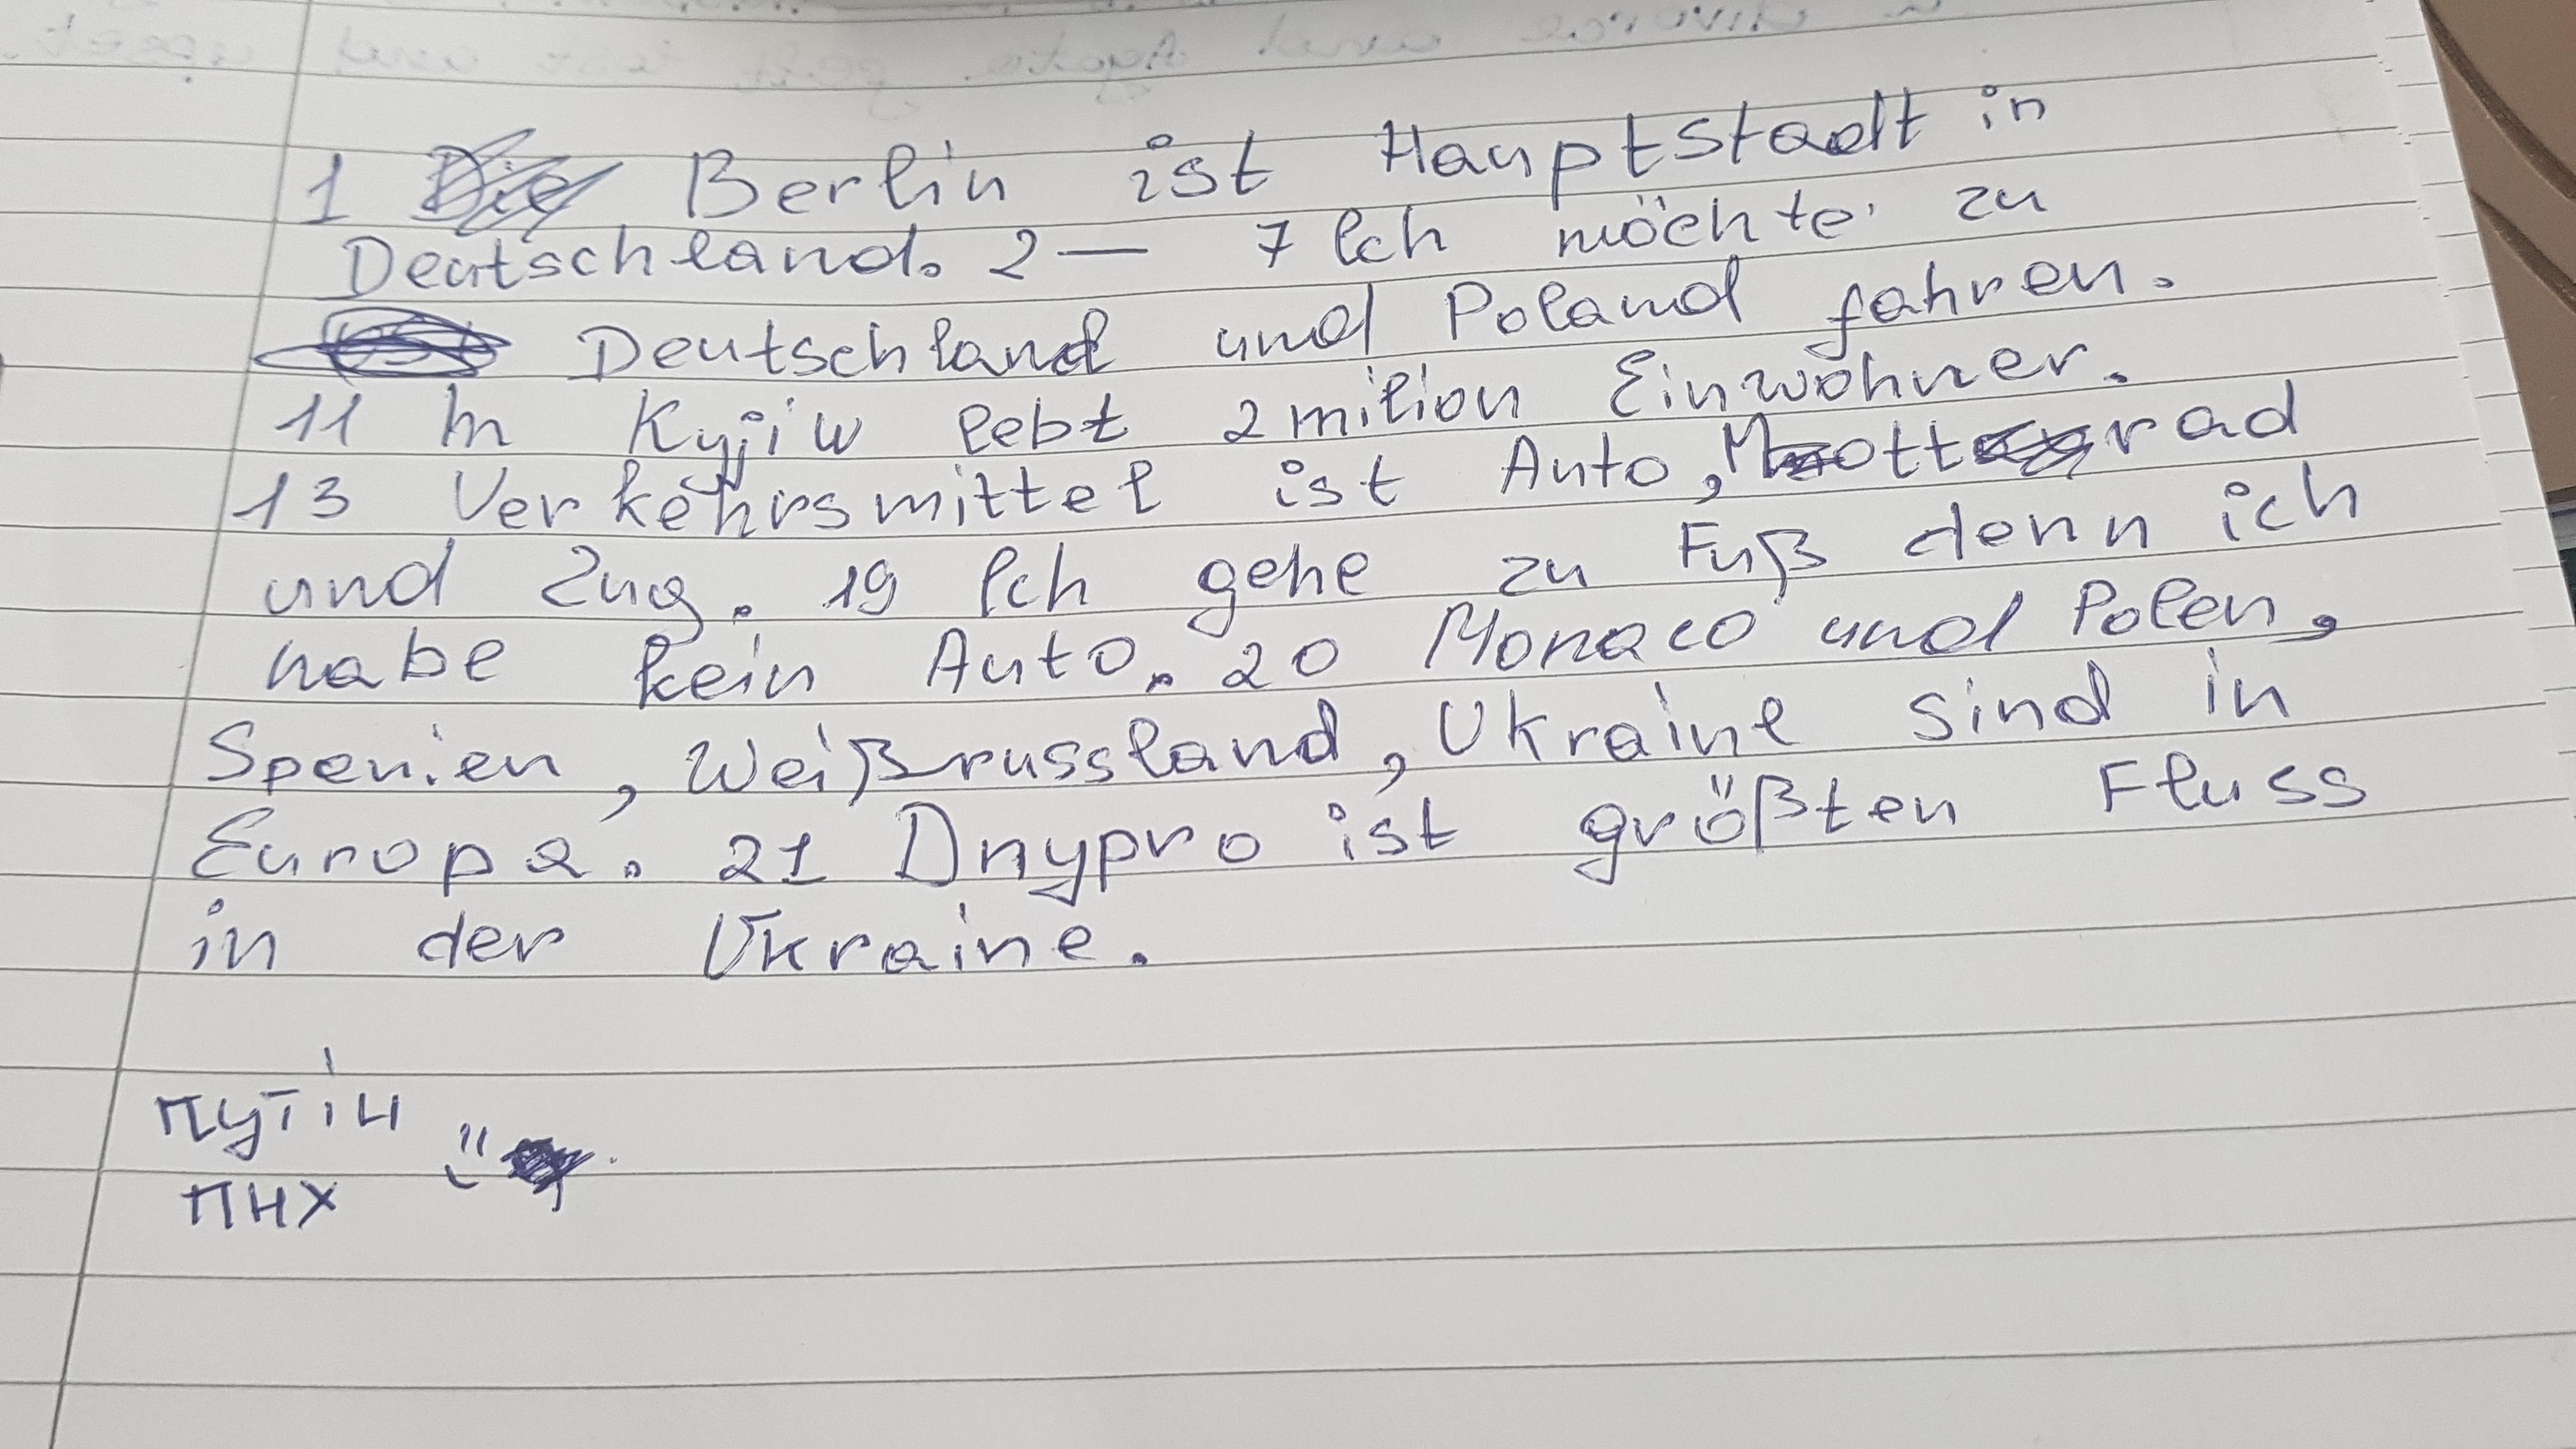 1 Berlin ist Hauptstadt in
Deutschland. 2 — 7 Ich möchte zu
Deutschland und Poland fahren.
11 In Kyjiw lebt 2 milion Einwohner.
13 Verkehrsmittel ist Auto, Mottrad
und Zug. 19 Ich gehe zu Fuß denn ich
habe kein Auto. 20 Monaco und Polen,
Spenien, Weißrussland, Ukraine sind in
Europa. 21 Dnypro ist größten Fluss
in der Ukraine.
путін
пнх